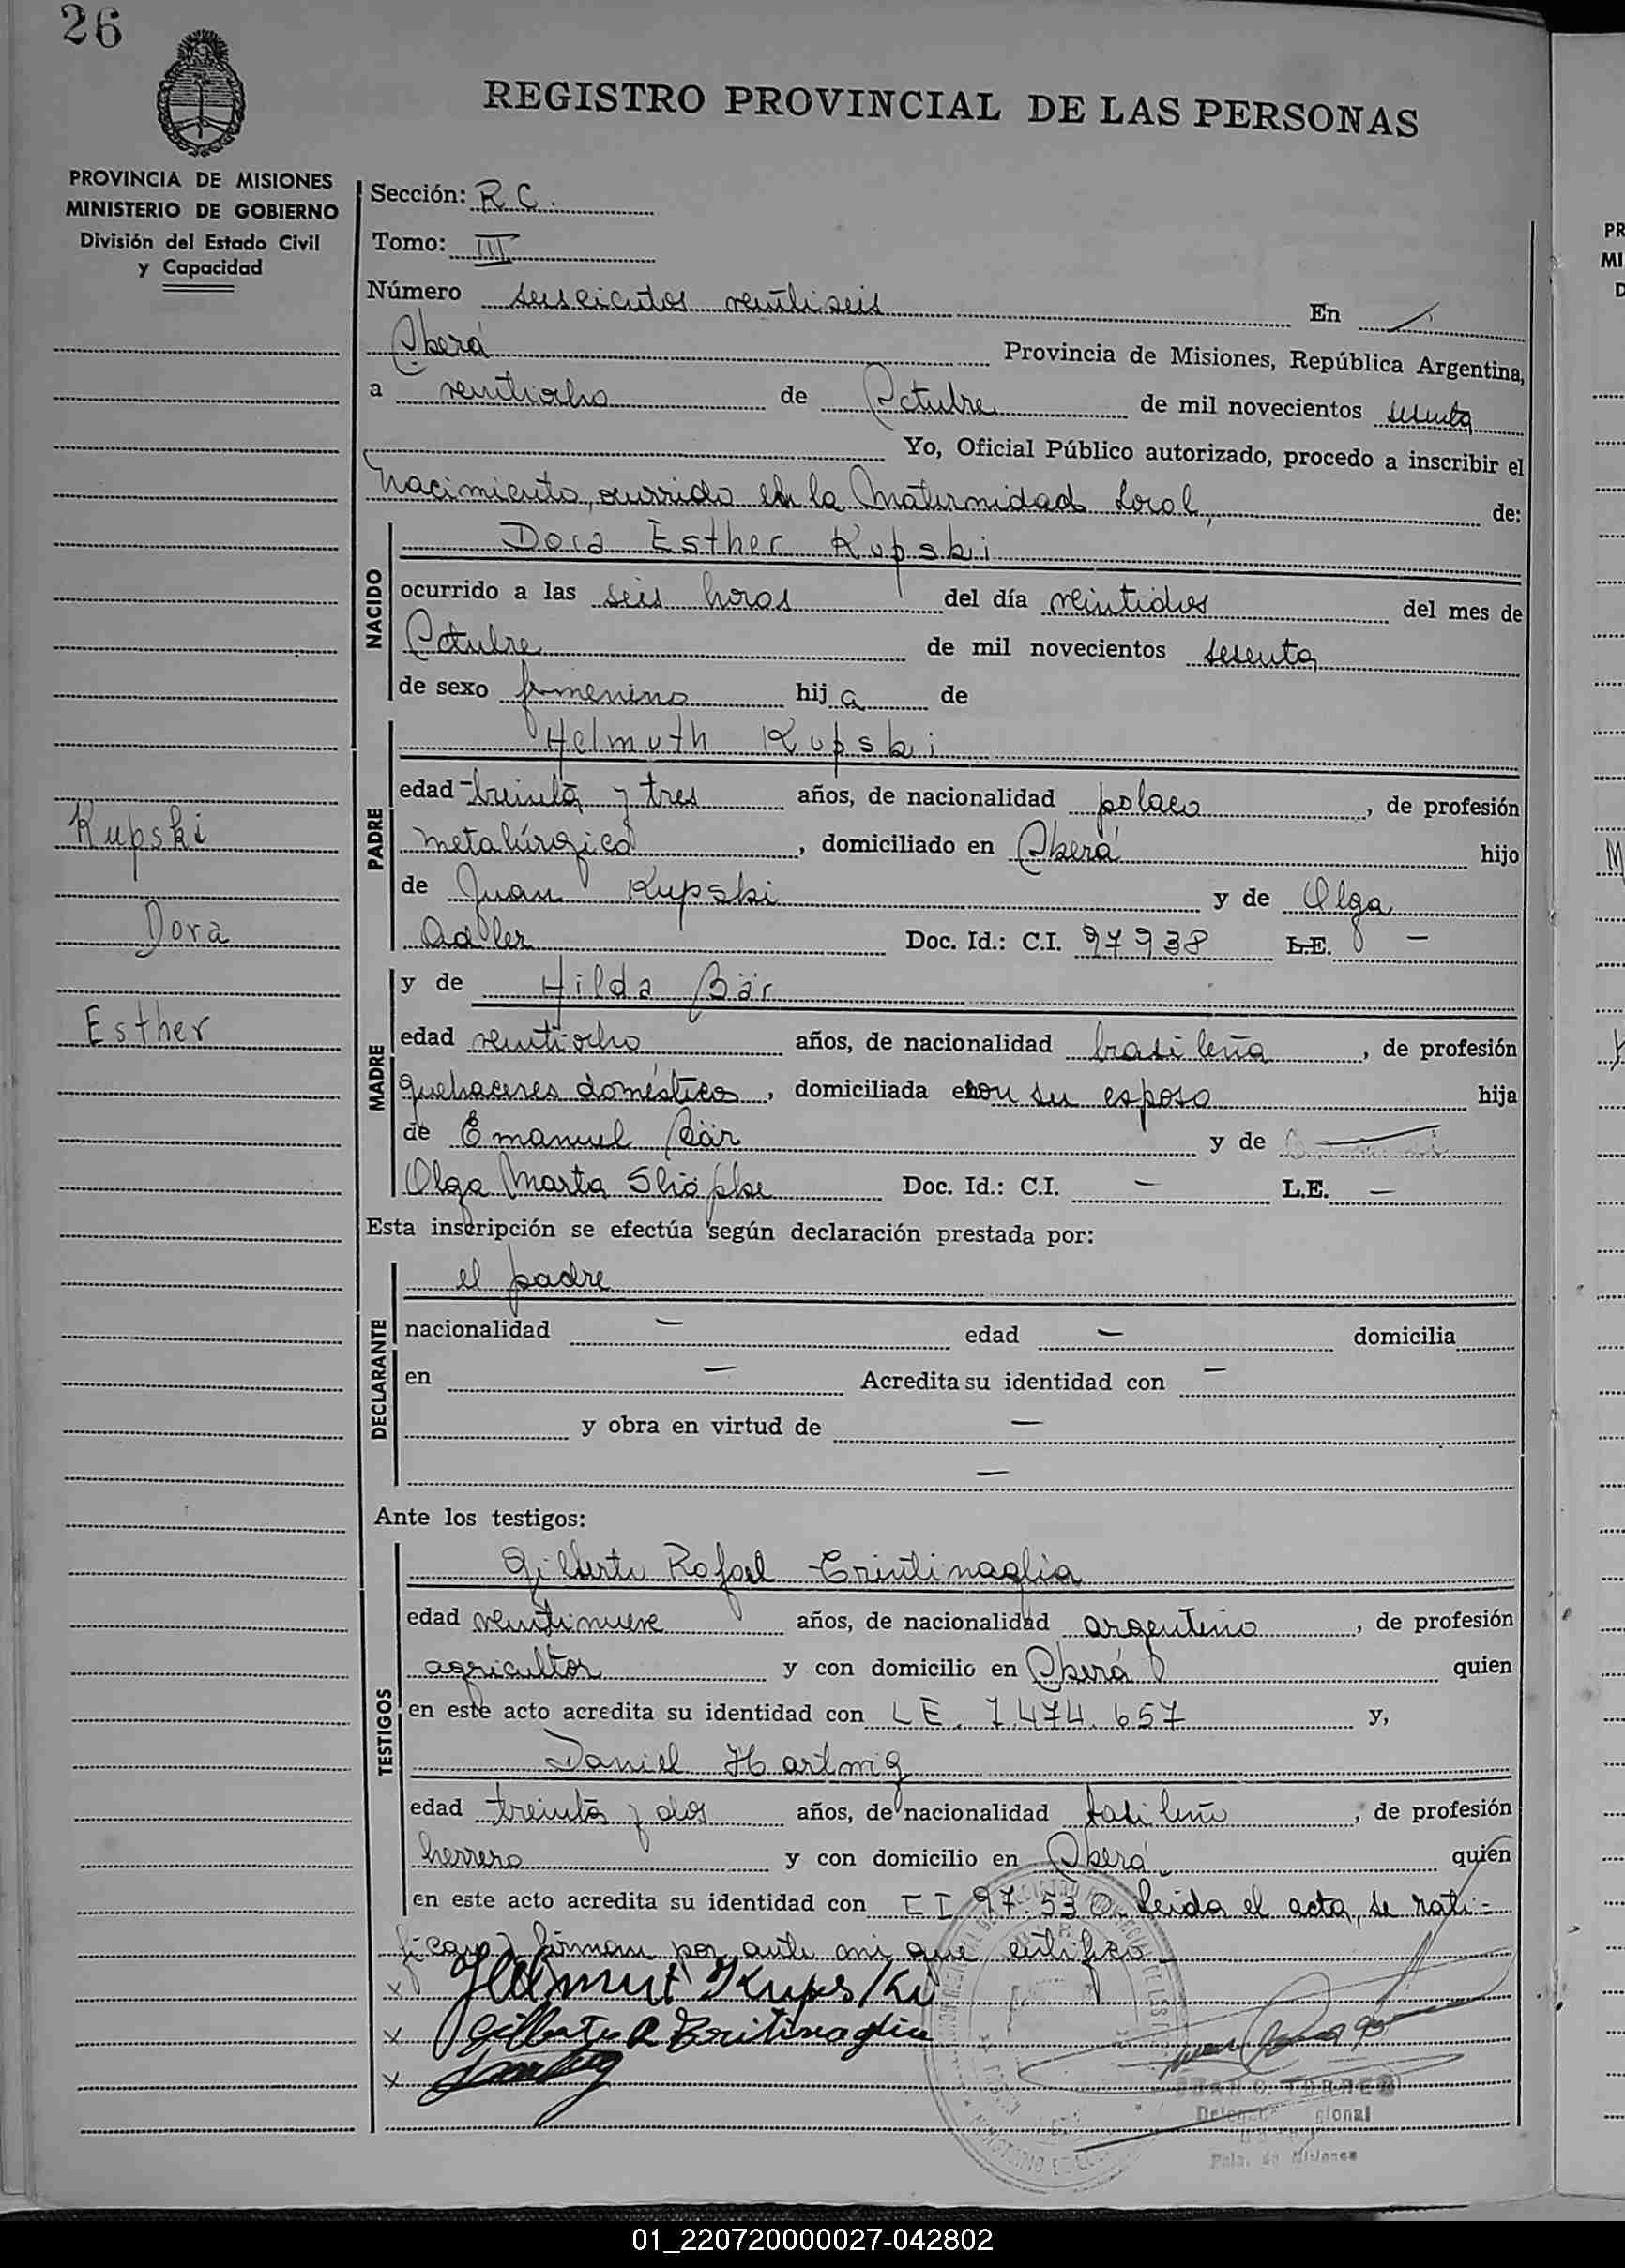 26
REGISTRO PROVINCIAL DE LAS PERSONAS
PROVINCIA DE MISIONES
MINISTERIO DE GOBIERNO
División del Estado Civil
y Capacidad
Sección: R C.
Tomo: III
Número seiscientos veintiseis En
Oberá Provincia de Misiones, República Argentina,
a veintiocho de Octubre de mil novecientos sesenta
Yo, Oficial Público autorizado, procedo a inscribir el
nacimiento, ocurrido en la Maternidad Local, de:
NACIDO
Dora Esther Kupski
ocurrido a las seis horas del día veintidos del mes de
Octubre de mil novecientos sesenta
de sexo femenino hija de
PADRE
Helmuth Kupski
edad treinta y tres años, de nacionalidad polaco, de profesión
metalúrgico, domiciliado en Oberá hijo
de Juan Kupski y de Olga
Adler Doc. Id.: C.I. 97938 L.E. —
Kupski
Dora
Esther
MADRE
y de Hilda Bär
edad veintiocho años, de nacionalidad brasileña, de profesión
quehaceres domésticos, domiciliada con su esposo hija
de Emanuel Bär y de
Olga Marta Doc. Id.: C.I. — L.E. —
Esta inscripción se efectúa según declaración prestada por:
DECLARANTE
el padre
nacionalidad — edad — domicilia
en — Acredita su identidad con —
y obra en virtud de —
—
Ante los testigos:
TESTIGOS
Gilberto Rafael
edad veintinueve años, de nacionalidad argentino, de profesión
agricultor y con domicilio en Oberá quien
en este acto acredita su identidad con LE. 7.474.657 y,
Daniel Hartwig
edad treinta y dos años, de nacionalidad basileño, de profesión
herrero y con domicilio en Oberá quien
en este acto acredita su identidad con CI 97.530. Leida el acta, se rati-
fican y firman por ante mi que certifico
x Helmut Kupski
x Gilberto R
x
JUAN C. TORRES
Pcia. de Misiones
PR
MI
D
01_220720000027-042802